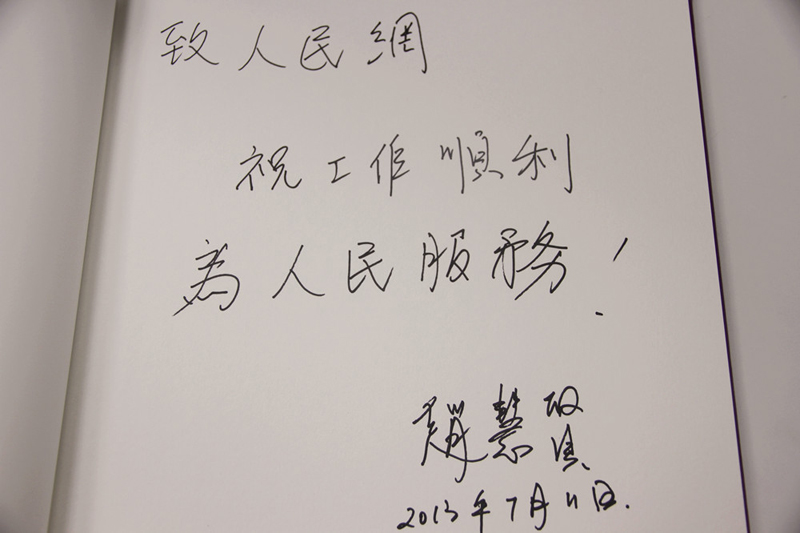 致人民網
祝工作順利
為人民服務！
趙慧賢
2013年7月11日.